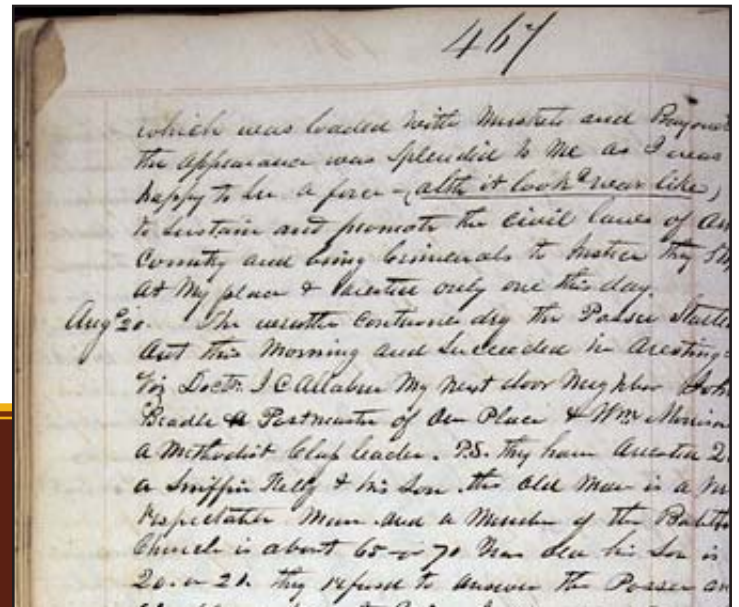 467
which was loaded with Muskets and
the appearance was Splendid to Me as I was
happy to see a force - (altho it look'd war like)
to Sustain and promote the civil laws of
County and bring Criminals to Justice they
at My place & arested only one this day.
Aug 20. The weather continues dry the Possee
out this Morning and Succeeded in Aresting
Viz Doctr. J C Allaben My next door Neighbor
Beadle Postmaster of our Place & Wm
a Methodist Class leader. P.S. they have Arested 2
a Griffin Kelly & his Son the old Man is a
respectable Man and a Member of the
Church is about 65 or 70 his Son is
20 or 21 they refused to answer the Possee